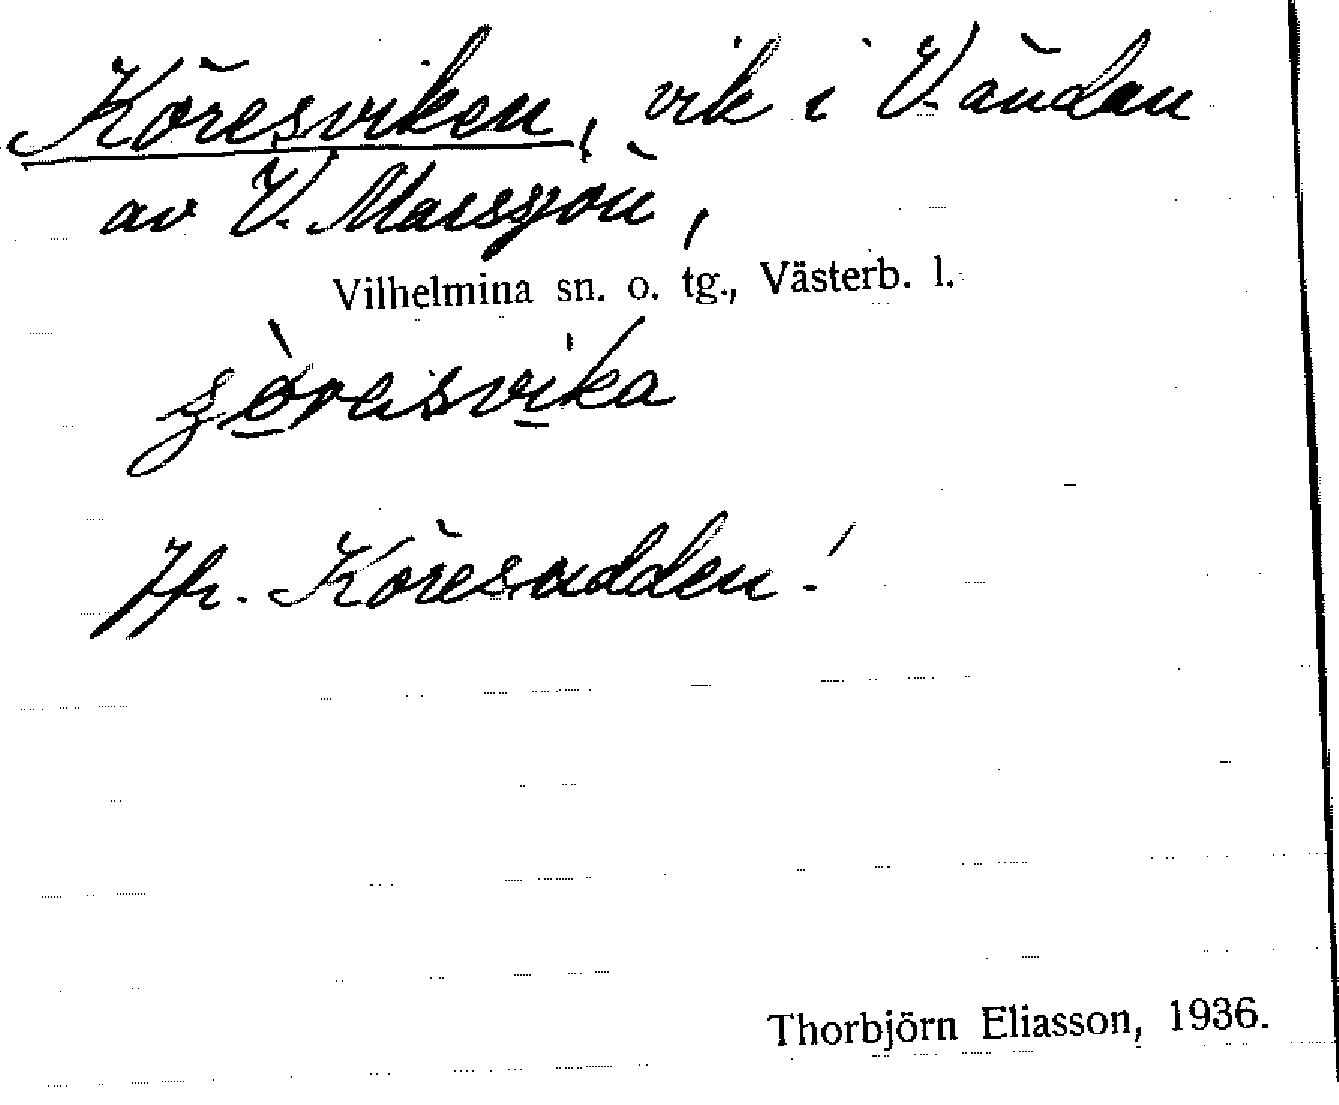 Köresviken, vik i V. ändan
av V. Marssjön,
Vilhelmina sn. o. tg., Västerb. l.
Jfr. Köresudden!
Thorbjörn Eliasson, 1936.